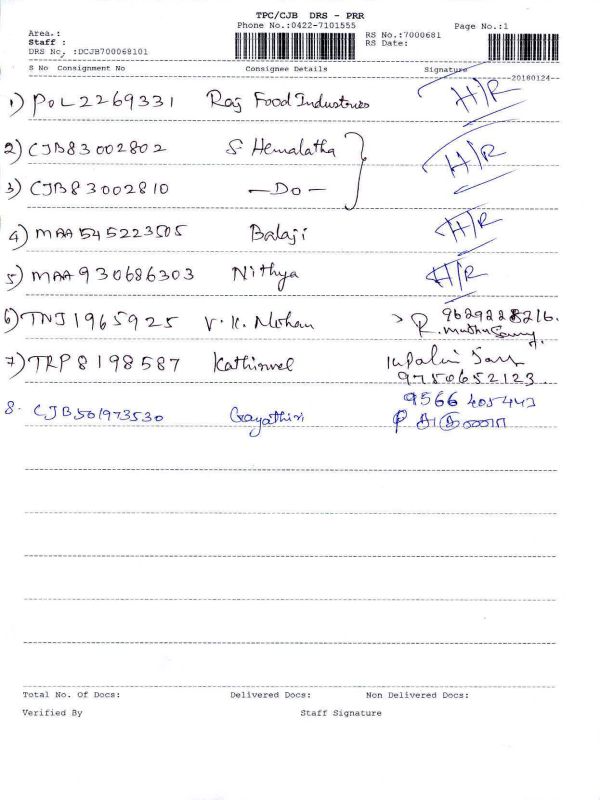 TPC/CJB DRS - PRR
Phone No.:0422-7101555 Page No.:1
Area.: RS No.:7000681
Staff : RS Date:
DRS No. :DCJB700068101
S No Consignment No Consignee Details Signature
20180124
1) POL2269331 Raj Food Industries H/R
2) CJB83002802 S Hemalatha H/R
3) CJB83002810 — Do —
4) MAA545223505 Balaji H/R
5) MAA930686303 Nithya H/R
6) TNJ1965925 V.K. Mohan 9629228216.
R. Muthusamy
7) TRP8198587 Kathirvel
9750652123
9566 405443
8. CJB501973530 Gayathiri
Total No. Of Docs: Delivered Docs: Non Delivered Docs:
Verified By Staff Signature